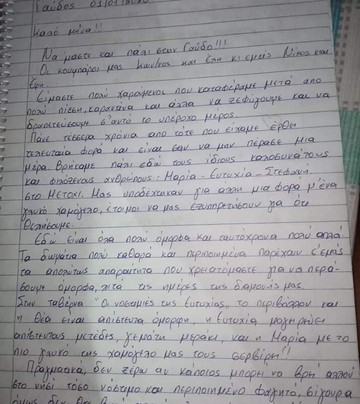 Γαύδος
Καλό μήνα!!
Να μαστε και πάλι στην Γαύδο!!!
Οι κουμπάροι μας και εμείς Νίκος και
Είμαστε πολύ χαρούμενοι που καταφέραμε μετά από
πολύ πίεση, και άλλα να ξεφύγουμε και να
βρισκόμαστε σ'αυτό το υπέροχο μέρος.
Πάνε τέσσερα χρόνια από τότε που είχαμε έρθει
τελευταία φορά και είναι σαν να μην πέρασε μια
μέρα. Βρήκαμε πάλι εδώ τους ίδιους καλοσυνάτους
και φιλόξενους ανθρώπους: Μαρία - Ευτυχία - Στεφανή,
στο Μετόχι. Μας υποδέχτηκαν για άλλη μια φορά μ'ένα
γλυκό χαμόγελο, έτοιμοι να μας εξυπηρετήσουν για ότι
θελήσουμε.
Εδώ είναι όλα πολύ όμορφα και ταυτόχρονα πολύ απλά.
Τα δωμάτια πολύ καθαρά και περιποιημένα παρέχουν σ'εμάς
τα απολύτως απαραίτητα που χρειαζόμαστε για να περά-
σουμε όμορφα, τις ημέρες της διαμονής μας.
Στην ταβέρνα "Οι νοστιμιές της Ευτυχίας", το περιβάλλον και
η θέα είναι απίστευτα όμορφη, η Ευτυχία μαγειρεύει
απίθανους μεζέδες, γεμάτη μεράκι, και η Μαρία με το
πιο γλυκό της χαμόγελο μας τους σερβίρει!!
Πραγματικά, δεν ξέρω αν κάποιος μπορεί να βρει αλλού
στο νησί τόσο νόστιμο και περιποιημένο φαγητό, σίγουρα
όμως δεν θα